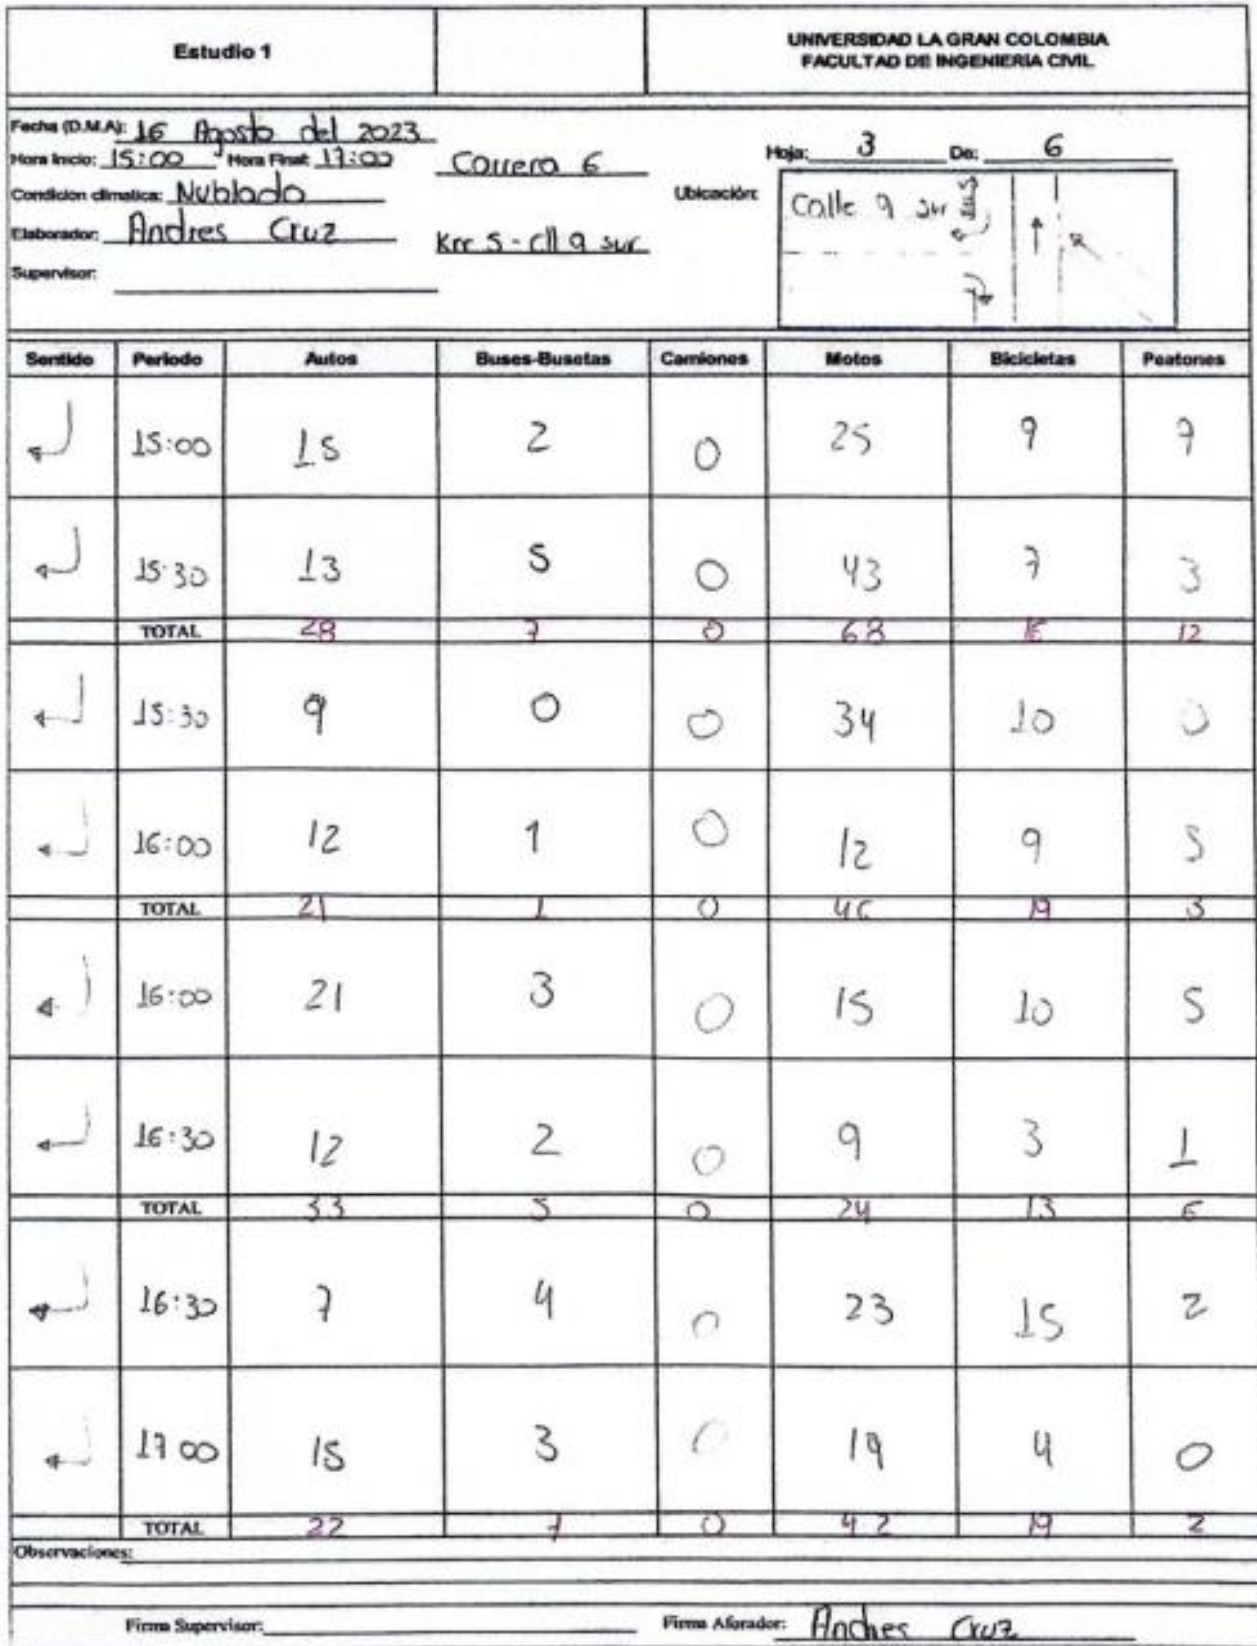 Estudio 1
UNIVERSIDAD LA GRAN COLOMBIA
FACULTAD DE INGENIERIA CIVIL
Fecha (D.M.A): 16 Agosto del 2023
Hora Inicio: 15:00 Hora Final: 17:00 Carrera 6
Hoja: 3 De: 6
Condicion climatica: Nublado
Ubicación: Calle 9 sur
Elaborador: Andres Cruz Krr 5 - cll 9 sur
Supervisor:
Sentido Periodo Autos Buses-Busetas Camiones Motos Bicicletas Peatones
15:00 15 2 0 25 9 9
15:30 13 5 0 43 7 3
TOTAL 28 7 0 68 16 12
15:30 9 0 0 34 10 0
16:00 12 1 0 12 9
TOTAL 21 1 0 46 19
16:00 21 3 0 15 10 5
16:30 12 2 0 9 3 1
TOTAL 33 5 0 24 13 6
16:30 7 4 0 23 15 2
17 00 15 3 0 19 4 0
TOTAL 22 7 0 42 19 2
Observaciones:
Firma Supervisor: Firma Aforador: Andres Cruz